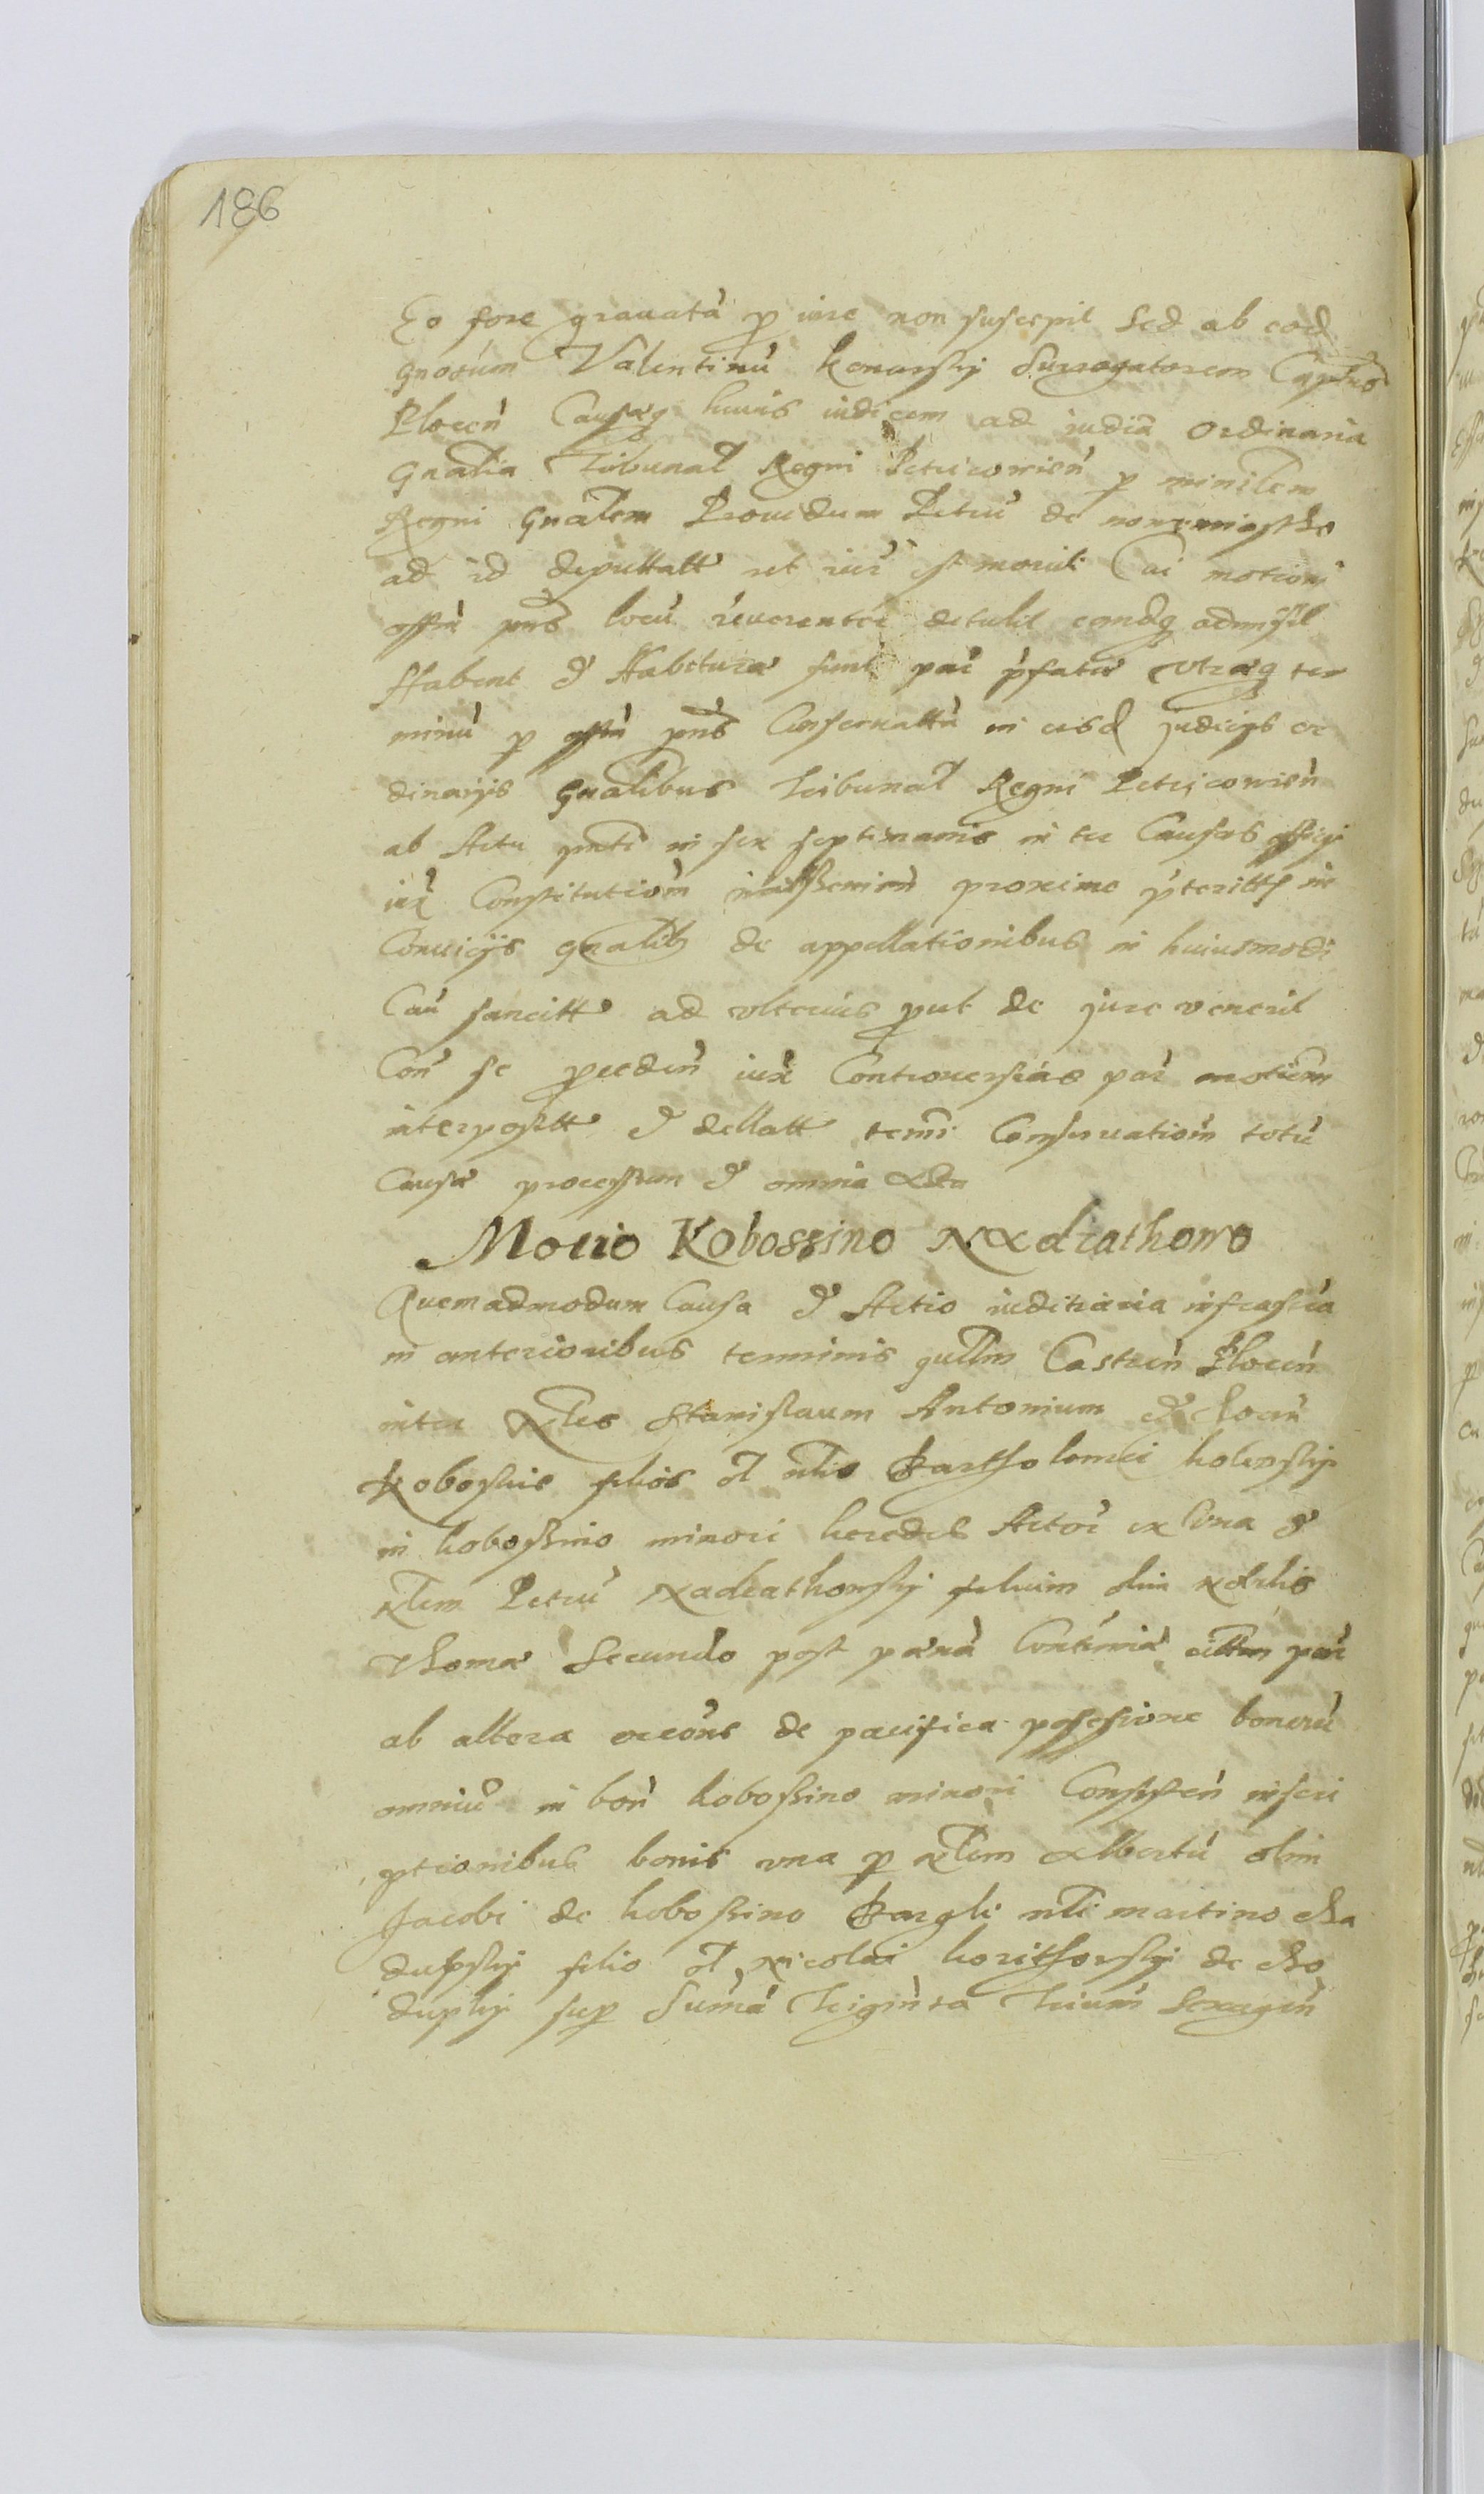 186
Eo fore grauatā p iure non suscepit Sed ab eod
gnosum Valentinū konarskj Surrogatorem Captus
Plocen̄ Causæq huius iudicem ad iudia ordinaria
Gnalia Tribunal Regni Petricouien̄ p minilem
Regni Gnalem Prouidum Petrū de
ad id deputtatt et iur st mouit Cui motioni
offm pns locū reuerenter detulit eamdq admisit
Habent & Habitura sunt par pfatæ vtraq ter
minū p offm pns Conseruattū in eisd judicys or
dinarijs Gnalibus Tribunal Regni Petricouien̄
ab Actu pnti in sex septimanis in ter Causas officij
iux Constitutiom proxime pteritts in
Conuicijs gnalib de appellationibus in huiusmodi
Cau sancitt ad vlterius put de jure venerit
Con se pcedeñ iux Controuersias par motiom
interposytt & dellatt termi Conseruatiom totū
Causæ processum & omnia acta
Motio Kobossino Nadratkowo
Quemadmodum Causa & Actio iuditiaria infrascra
in anterioribus terminis qullm Castren̄ Plocen̄
inter Nles Stanislaum Antonium & Joan̄
Koboskie filios ol nlis Bartholomei
in kobossino minori heredes Actor ex vna &
Nlem Petrū Nadratkowskj filium olim Nobilis
Thomæ Secundo post pænā Contumā cittm par
ab altera occons de pacifica possesione bonorū
omniū in bon̄ kobossino minori Consisten̄ inscri
ptionibus bonis vna p Nlem Albertū olim
Jacobi de kobossino nli martino
filio ol Nicolai de
sup Sum̄ā Triginta Trium Sexagen̄